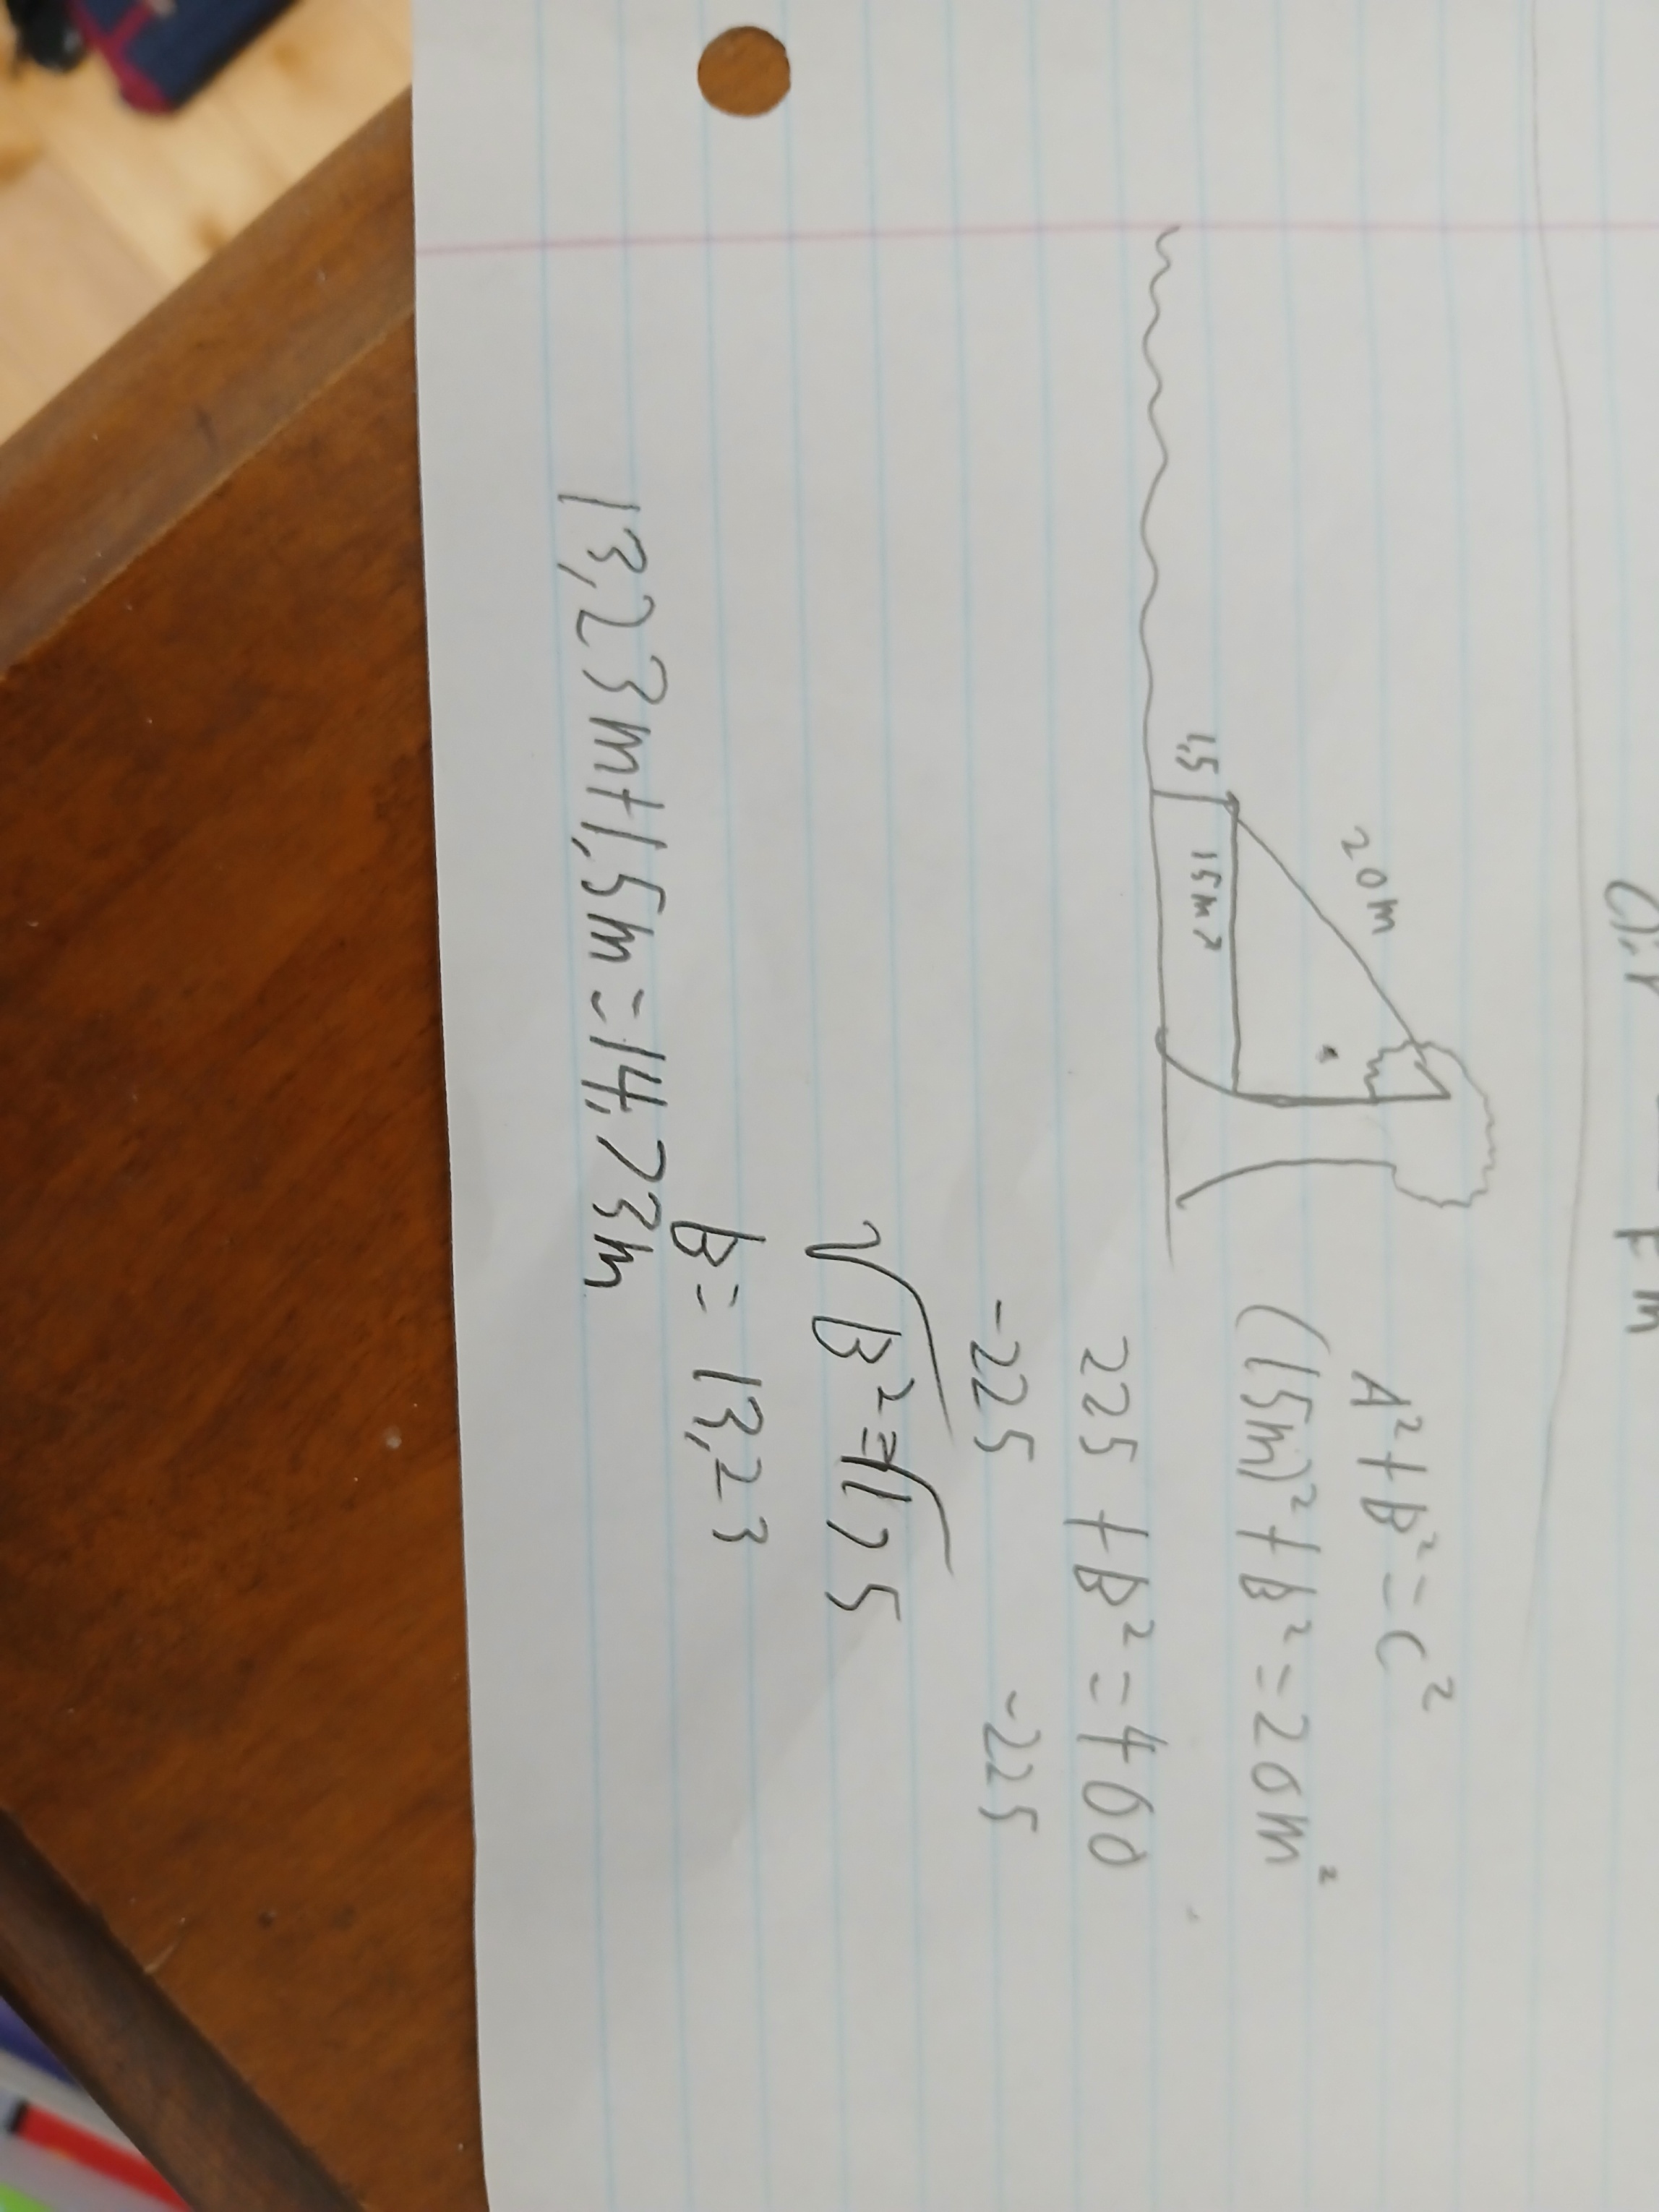 20m
1,5
15m
A² + B² = C²
(15m)² + B² = 20m²
225 + B² = 400
-225 -225
√B² = √175
B = 13,23
13,23m + 1,5m = 14,73m